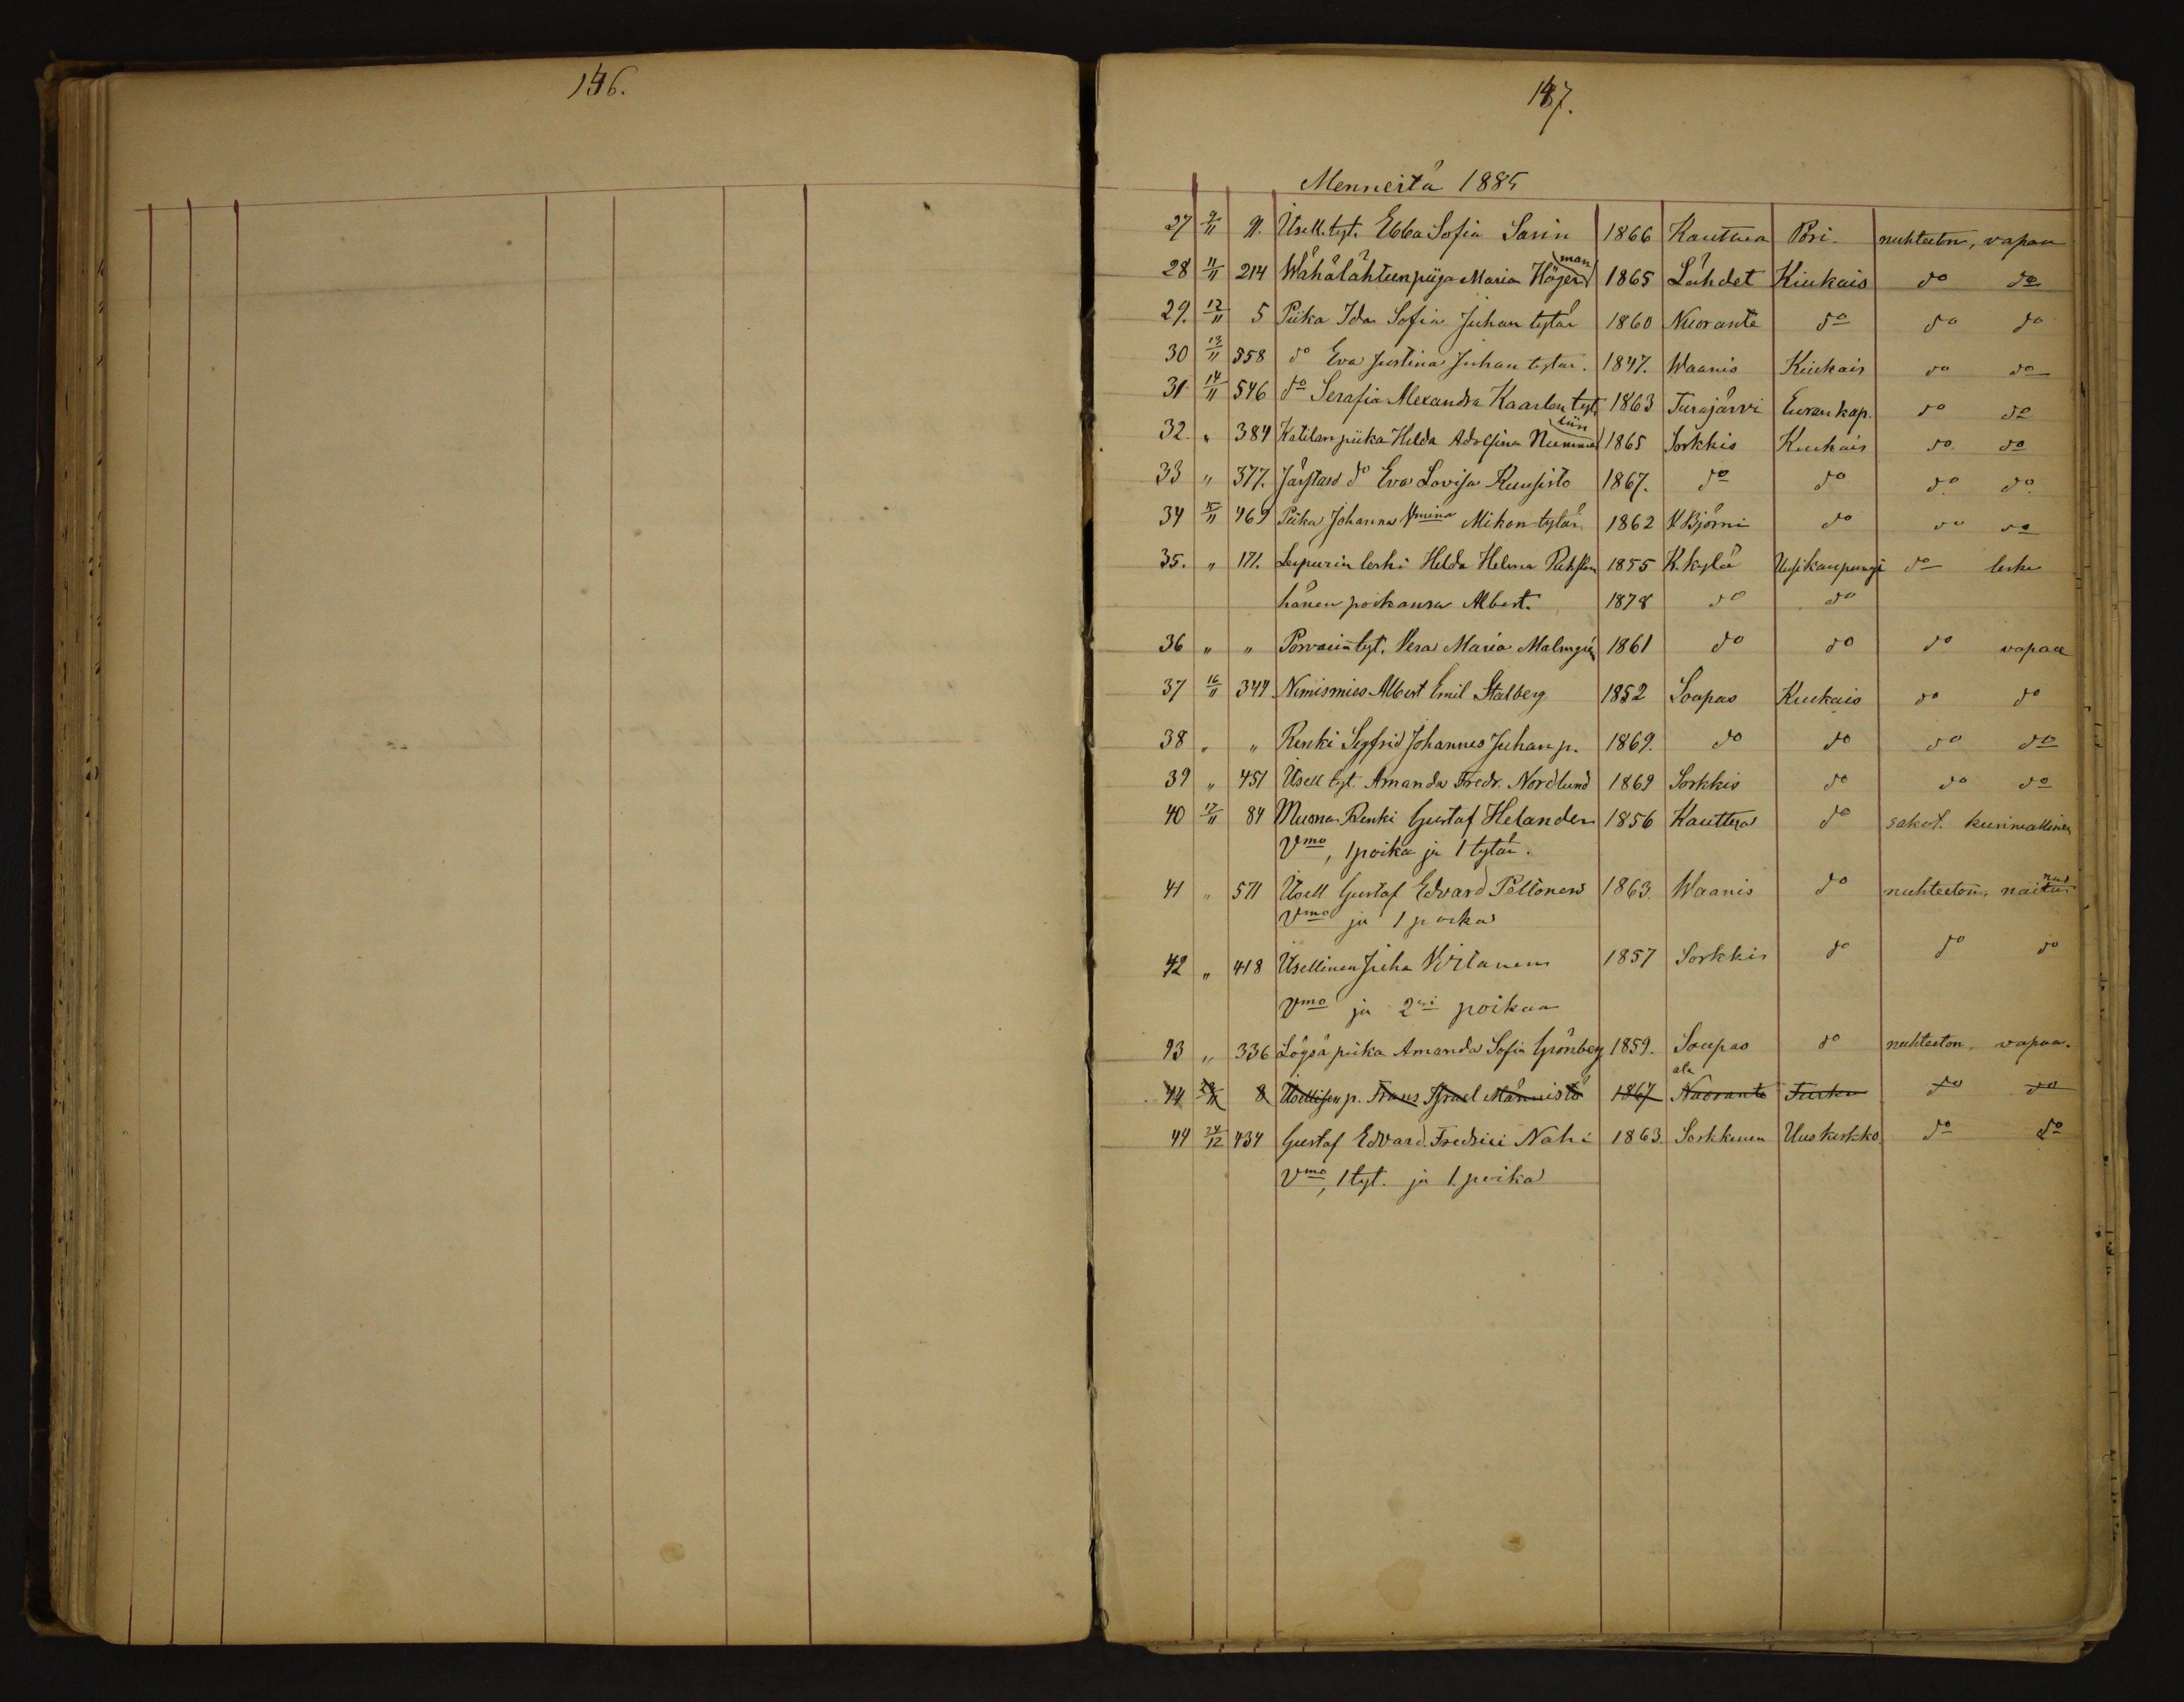 146.
147.
Menneitä 1885
27 9/11 91. Itsell. tyt. Ebba Sofia Sarin 1866 Kauttua Pori. nuhteeton, vapaa
28 11/11 214 Wähälähteen piiga Maria Höger(man 1865 Lähdet Kiukais do do
29. 12/11 5 Piika Ida Sofia Juhan tytär 1860 Nuoranta do do do
30 13/11 558 do Eva Justina Juhan tytär. 1847. Waanis Kiukais do do
31 14/11 546 do Serafia Alexandra Kaarlen tyt. 1863 Turajärvi Euran kap. do do
32. " 384 Katilan piika Hilda Adolfina Nummel(iin 1865 Sorkkis Kiukais do. do
33 " 377. do Eva Lovisa Kuusisto 1867. do do do do
34 15/11 469 Piika Johanna Vmina Mikon tytär 1862 V Björni do do do
35. " 171. Leipurin leski Hilda Helena 1855 K. kylä Uusikaupungi do leski
hänen poikansa Albert. 1878 do do
36 " " Porvarin tyt. Vera Maria Malmgren 1861 do do do vapaa
37 16/11 344 Nimismies Albert Emil Stålberg 1852 Soupas Kiukais do do
38 " " Renki Sigfrid Johannes Juhan p. 1869. do do do do
39 " 451 Itsell tyt. Amanda Fredr. Nordlund 1869 Sorkkis do do do
40 17/11 84 Muona Renki Gustaf Helander 1856 Kauttua do sakot. kuriwallinen
Vmo, 1 poika ja 1 tytär.
41 " 571 Itsell Gustaf Edvard Peltonen 1863. Waanis do nuhteeton, nainut
Vmo ja 1 poika
42 " 418 Itsellinen Juha Virtanen 1857 Sorkkis do do do
Vmo ja 2si poikaa
43 " 336 Lögsä piika Amanda Sofia Grönberg 1859. Soupas do nuhteeton, vapaa.
ala
44 8 Itsellisen p. Frans Israel Männistö 1867 Nuoranta Turku do do
44 24/12 434 Gustaf Edvard Fredrici Nahi 1863. Sorkkinen Uus kirkko do do
Vmo, 1 tyt. ja 1. poika